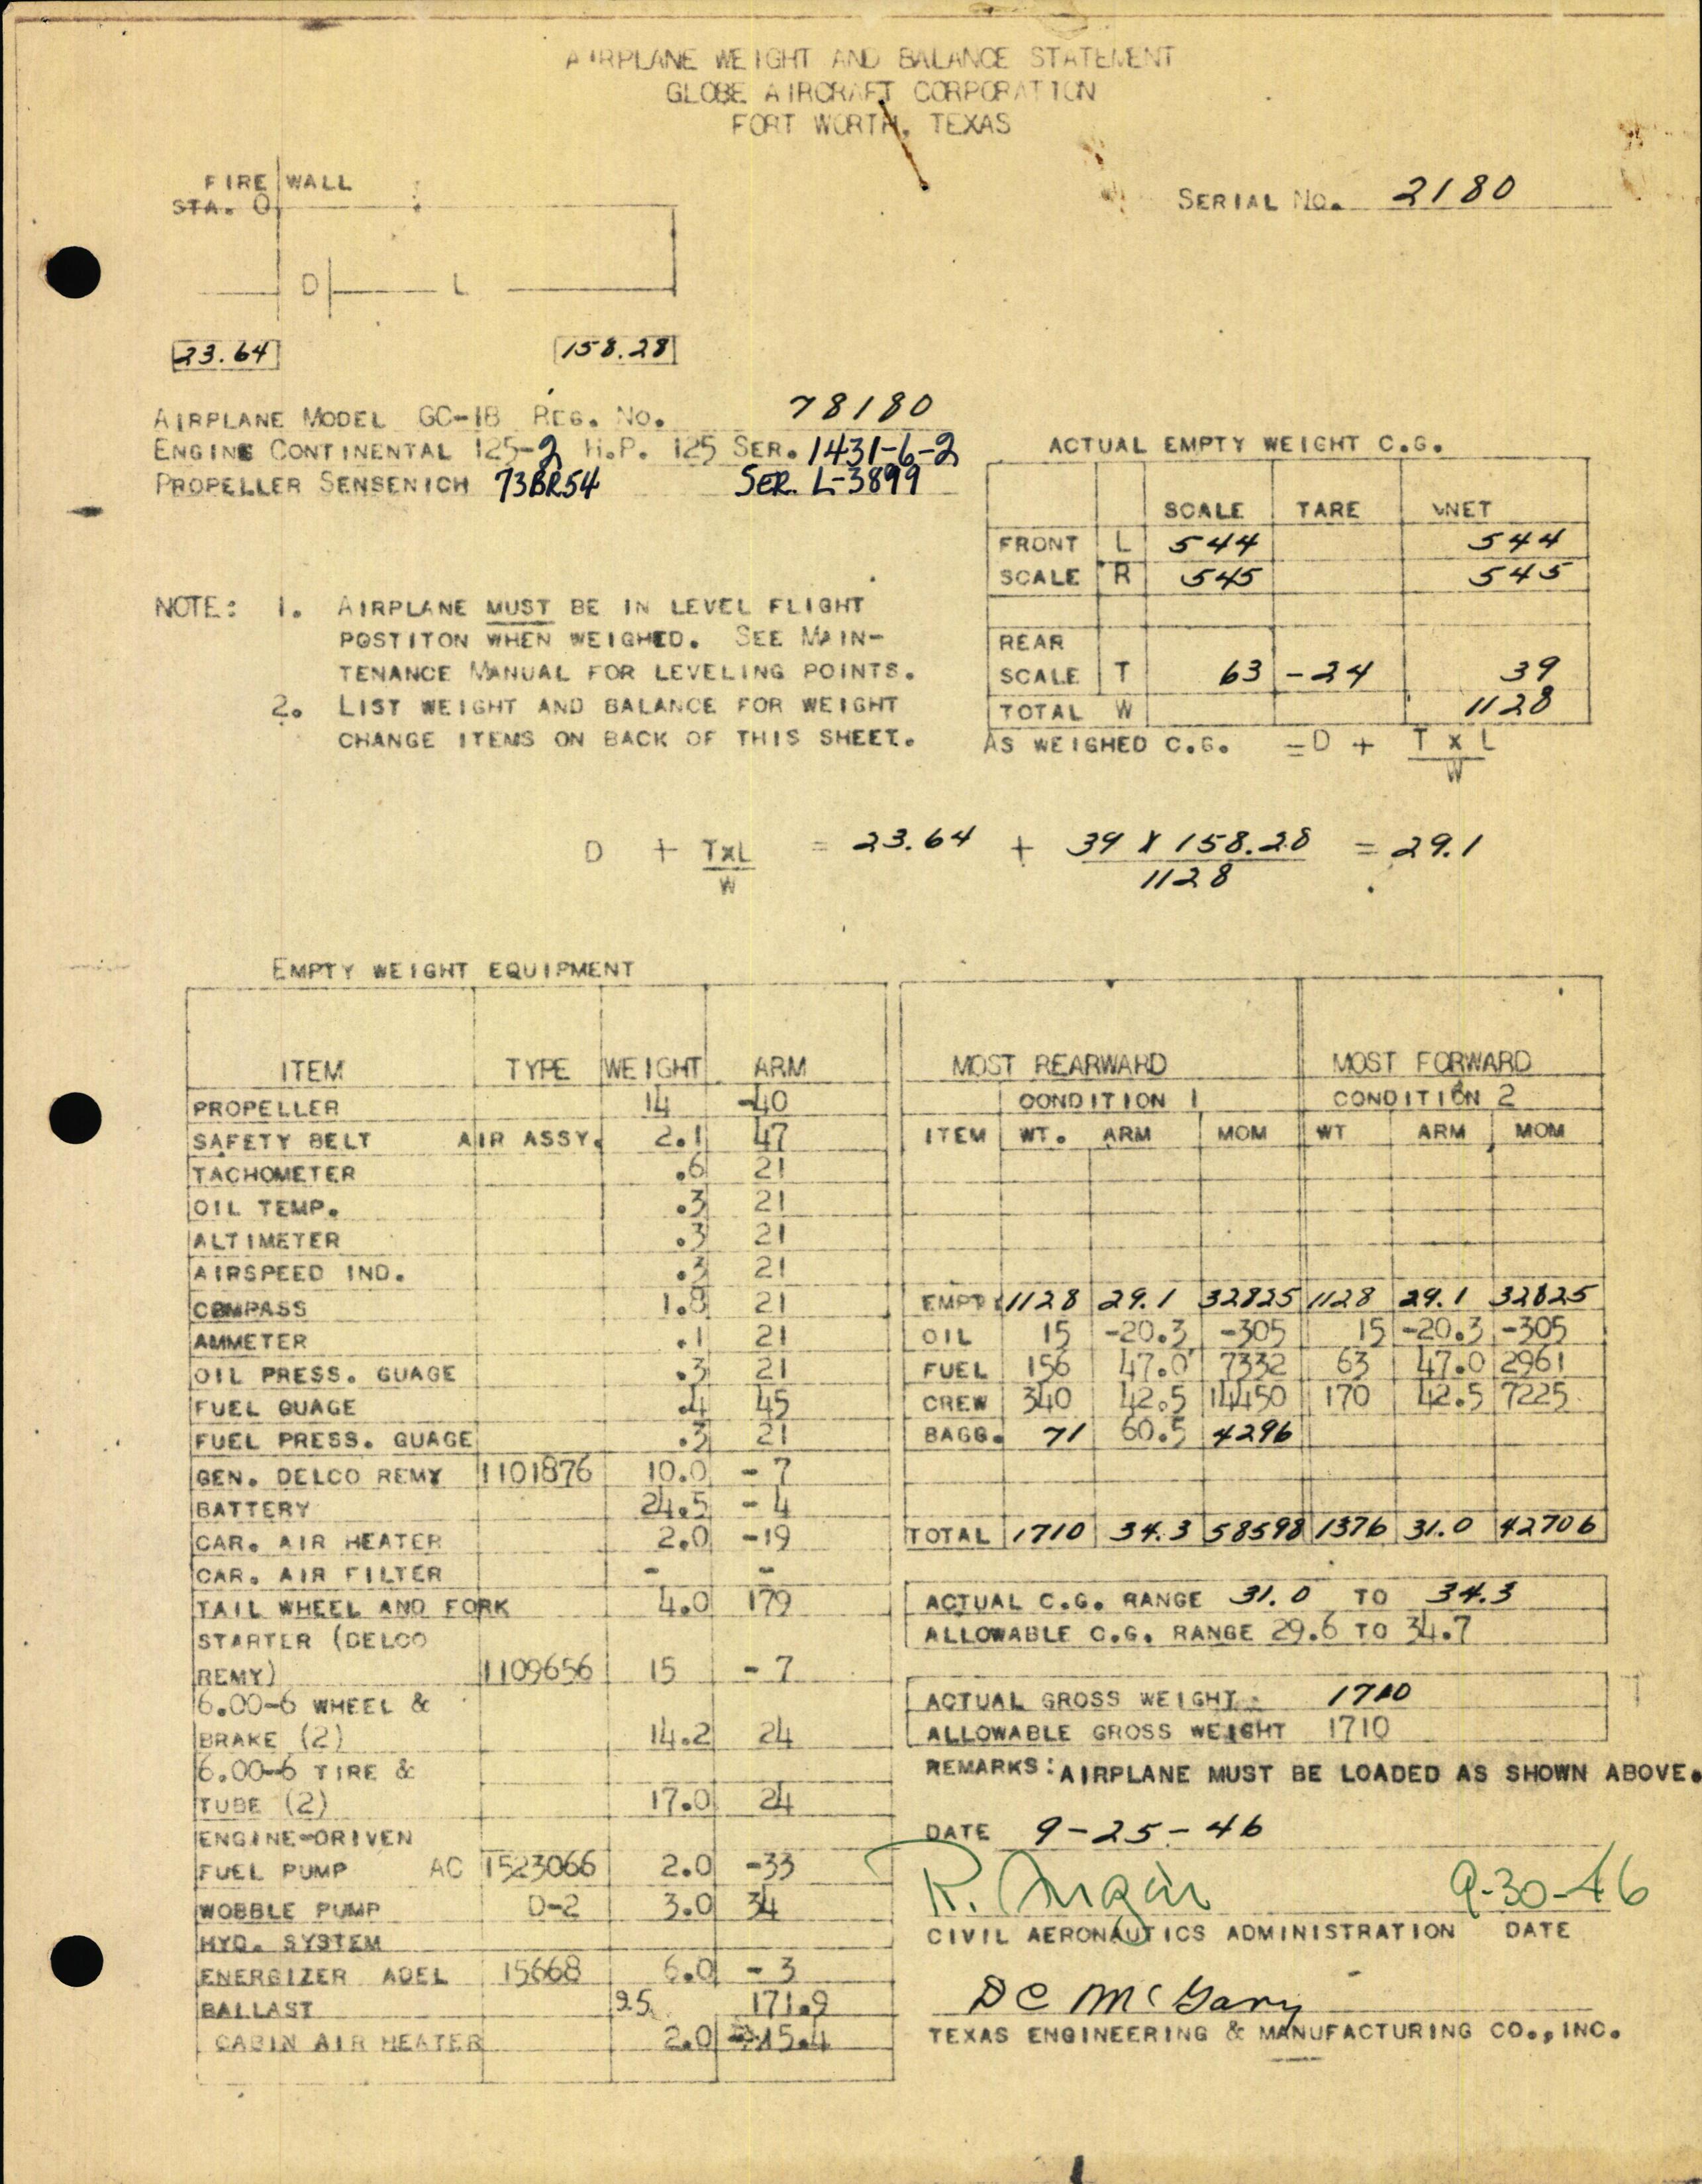 AIRPLANE WEIGHT AND BALANCE STATEMENT
GLOBE AIRCRAFT CORPORATION
FORT WORTH, TEXAS
FIRE WALL
STA. 0
SERIAL NO. 2180
D L
23.64 158.28
AIRPLANE MODEL GC-1B REG. NO. 78180
ENGINE CONTINENTAL 125-2 H.P. 125 SER. 1431-6-2
PROPELLER SENSENICH 73BR54 SER. L-3899
ACTUAL EMPTY WEIGHT C.G.
SCALE TARE NET
FRONT L 544 544
SCALE R 545 545
REAR
SCALE T 63 -24 39
TOTAL W 1128
AS WEIGHED C.G. = D + T x L
W
NOTE: 1. AIRPLANE MUST BE IN LEVEL FLIGHT
POSTITON WHEN WEIGHED. SEE MAIN-
TENANCE MANUAL FOR LEVELING POINTS.
2. LIST WEIGHT AND BALANCE FOR WEIGHT
CHANGE ITEMS ON BACK OF THIS SHEET.
D + TxL = 23.64 + 39 X 158.28 = 29.1
W 1128
EMPTY WEIGHT EQUIPMENT
ITEM TYPE WEIGHT ARM
PROPELLER 14 -40
SAFETY BELT AIR ASSY. 2.1 47
TACHOMETER .6 21
OIL TEMP. .3 21
ALTIMETER .3 21
AIRSPEED IND. .3 21
COMPASS 1.8 21
AMMETER .1 21
OIL PRESS. GUAGE .3 21
FUEL GUAGE .4 45
FUEL PRESS. GUAGE .3 21
GEN. DELCO REMY 1101876 10.0 - 7
BATTERY 24.5 - 4
CAR. AIR HEATER 2.0 -19
CAR. AIR FILTER - -
TAIL WHEEL AND FORK 4.0 179
STARTER (DELCO
REMY) 1109656 15 - 7
6.00-6 WHEEL &
BRAKE (2) 14.2 24
6.00-6 TIRE &
TUBE (2) 17.0 24
ENGINE-DRIVEN
FUEL PUMP AC 1523066 2.0 -33
WOBBLE PUMP D-2 3.0 34
HYD. SYSTEM
ENERGIZER ADEL 15668 6.0 - 3
BALLAST 9.5 171.9
CABIN AIR HEATER 2.0 15.4
MOST REARWARD MOST FORWARD
CONDITION 1 CONDITION 2
ITEM WT. ARM MOM WT ARM MOM
EMPT 1128 29.1 32825 1128 29.1 32825
OIL 15 -20.3 -305 15 -20.3 -305
FUEL 156 47.0 7332 63 47.0 2961
CREW 340 42.5 14450 170 42.5 7225
BAGG. 71 60.5 4296
TOTAL 1710 34.3 58598 1376 31.0 42706
ACTUAL C.G. RANGE 31.0 TO 34.3
ALLOWABLE C.G. RANGE 29.6 TO 34.7
ACTUAL GROSS WEIGHT 1710
ALLOWABLE GROSS WEIGHT 1710
REMARKS: AIRPLANE MUST BE LOADED AS SHOWN ABOVE.
DATE 9-25-46
R. 9-30-46
CIVIL AERONAUTICS ADMINISTRATION DATE
DC McGary
TEXAS ENGINEERING & MANUFACTURING CO., INC.